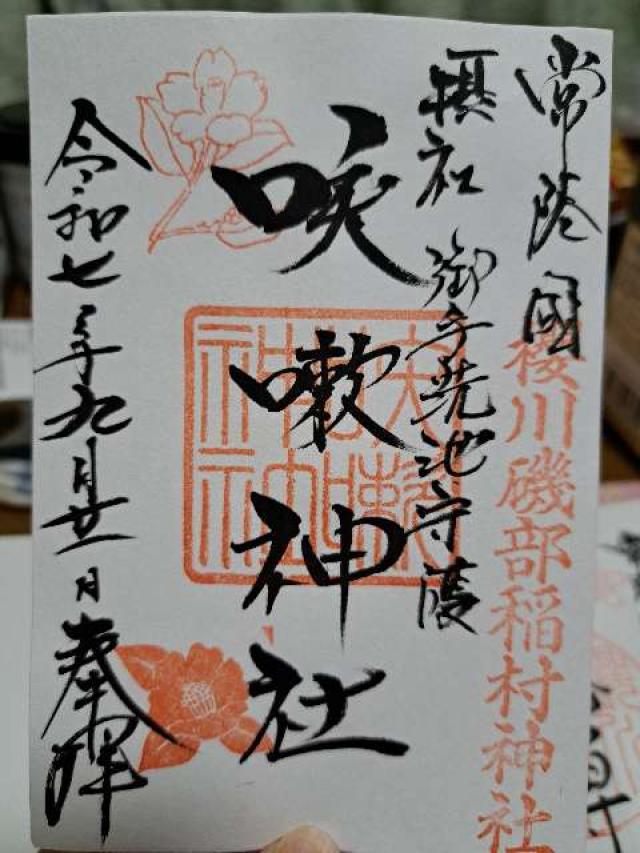 常陸國
櫻川磯部稲村神社
摂社 御手洗池守護
咳嗽神社
令和七年九月廿一日奉拝